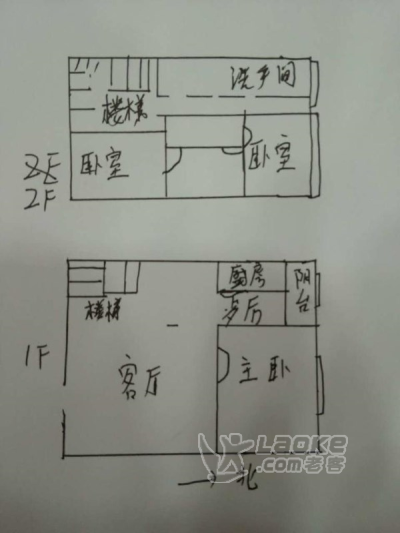 洗手间
楼梯
卧室
卧室
2F
厨房
阳台
楼梯
步厅
1F
客厅
主卧
LAOKE
.com老客
北